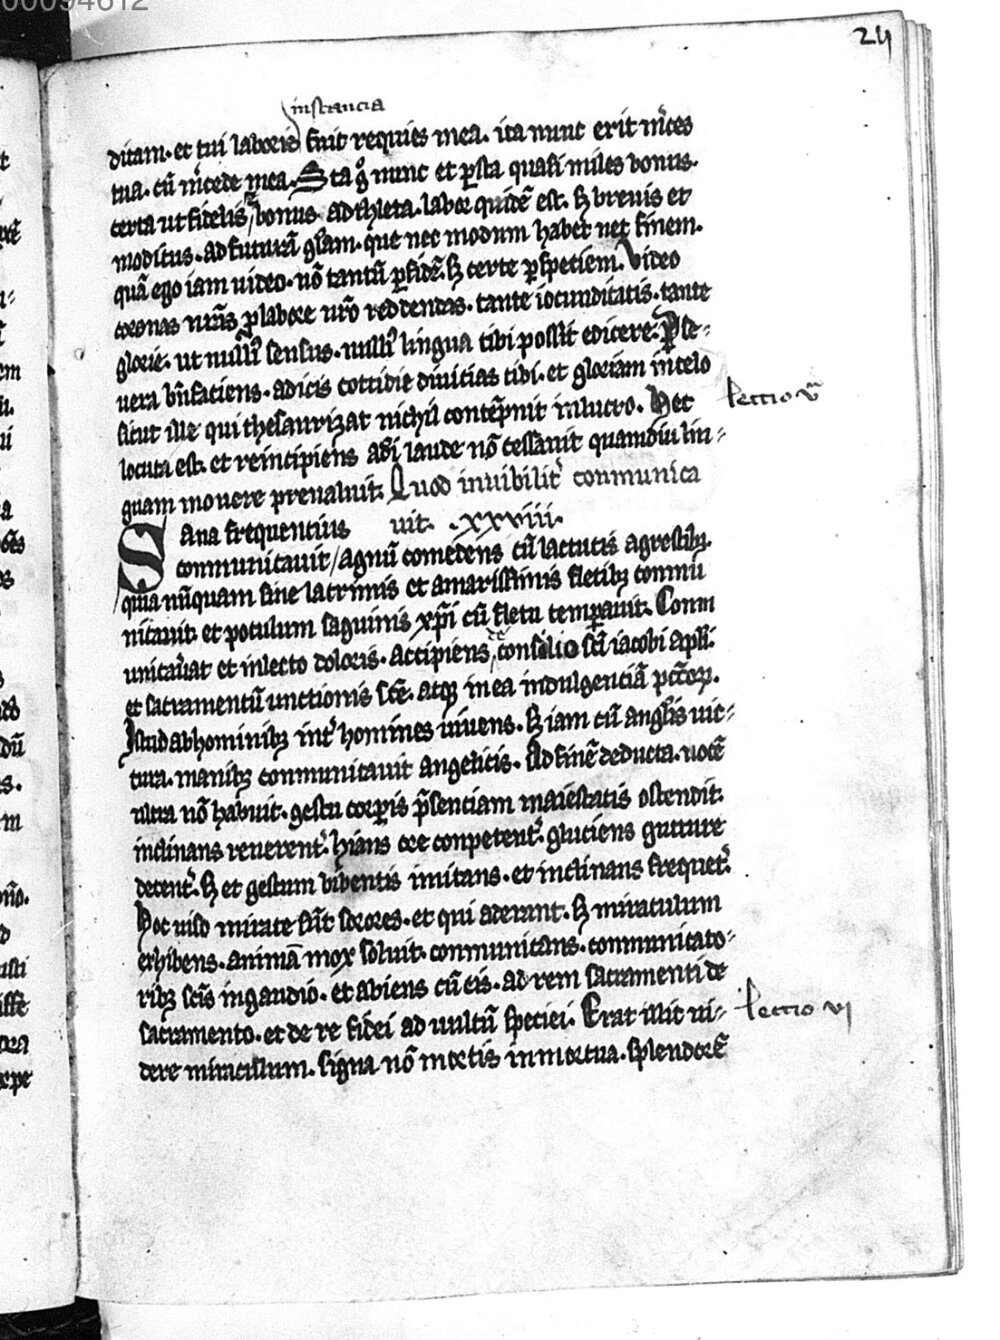 00094612
24
instancia
ditam. et tui laboris fuit requies mea. ita nunc erit m̄ces
tua. cū m̄cede mea. Sta gͦ nunc et ꝑsta quasi miles bonus.
certa ut fidelis bonus. adthleta. labor quidē est. sꝫ brevis et
modicus. ad futurā gl̄am. que nec modum habet nec finem.
quā ego iam uideo. nō tantū ꝑ fidē. sꝫ certe ꝑ speciem. Video
coronas nr̄as ꝓ labore nr̄o reddendas. tante iocunditatis. tante
glorie. ut nulli sensus. nulli lingua tibi possit edicere. ꝑse-
uera bn̄faciens. adicis cottidie diuicias tibi. et gloriam in celo
sicut ille qui thesaurizat nichil contēpnit in lucro. Hec
lectio v
locuta est. et reincipiens a dei laude nō cessauit quamdiu lin-
guam mouere preualuit. Quod inuibilit̄ communica
Sana frequentius uit. .xxviii.
communicauit / agnū comedens cū lactucis agrestibꝫ.
quia nūquam sine lacrimis et amarissimis fletibꝫ commu
nicauit. et potulum saguinis xp̄i cū fletu temꝑauit. Comm
unicauat et in lecto doloris. accipiens consilio sc̄i iacobi apl̄i.
et sacramentū unctionis sc̄e. atqꝫ in ea indulgenciā pctōꝝ.
Istud ab hominibꝫ int̄ homines uiuens. sꝫ iam cū angl̄is uic-
tura. manibꝫ communicauit angelicis. Ad finē deducta. uocē
ultra nō habuit. gestu corꝑis p̄senciam maiestatis ostendit.
inclinans reuerent̄. hians ore conpetent̄. gluciens gutture
decent̄. sꝫ et gestum bibentis imitans. et inclinans frequet̄.
Hoc uiso mirate sūt sorores. et qui aderant. sꝫ miraculum
exhibens. animā mox soluit. communicans. communicato-
ribꝫ sc̄is in gaudio. et abiens cū eis. ad rem sacramenti de
sacramento. et de re fidei ad uultū speciei. Erat illic ui-
lectio vi
dere miraculum. signa nō mortis in mortua. splendorē